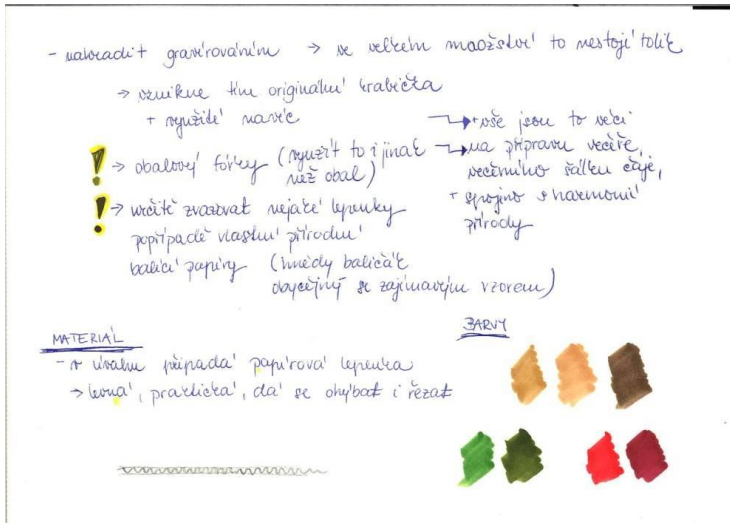 - nahradit gravírováním → ve velkém množství to nestojí tolik
→ vznikne tím originální krabička
+ využití navíc
! → obalový fórky (využít to i jinak
než obal)
→ + vše jsou to věci
→ na přípravu večeře,
večerního šálku čaje,
+ spojino s harmonií
přírody
! → určitě zvazovat nějaké lepenky
popřípadě vlastní přírodní
balící papíry (hnědy baličák
obyčejný se zajímavým vzorem)
MATERIÁL
- v úvahu připadá papírová lepenka
→ levná, praktická, dá se ohýbat i řezat
BARVY